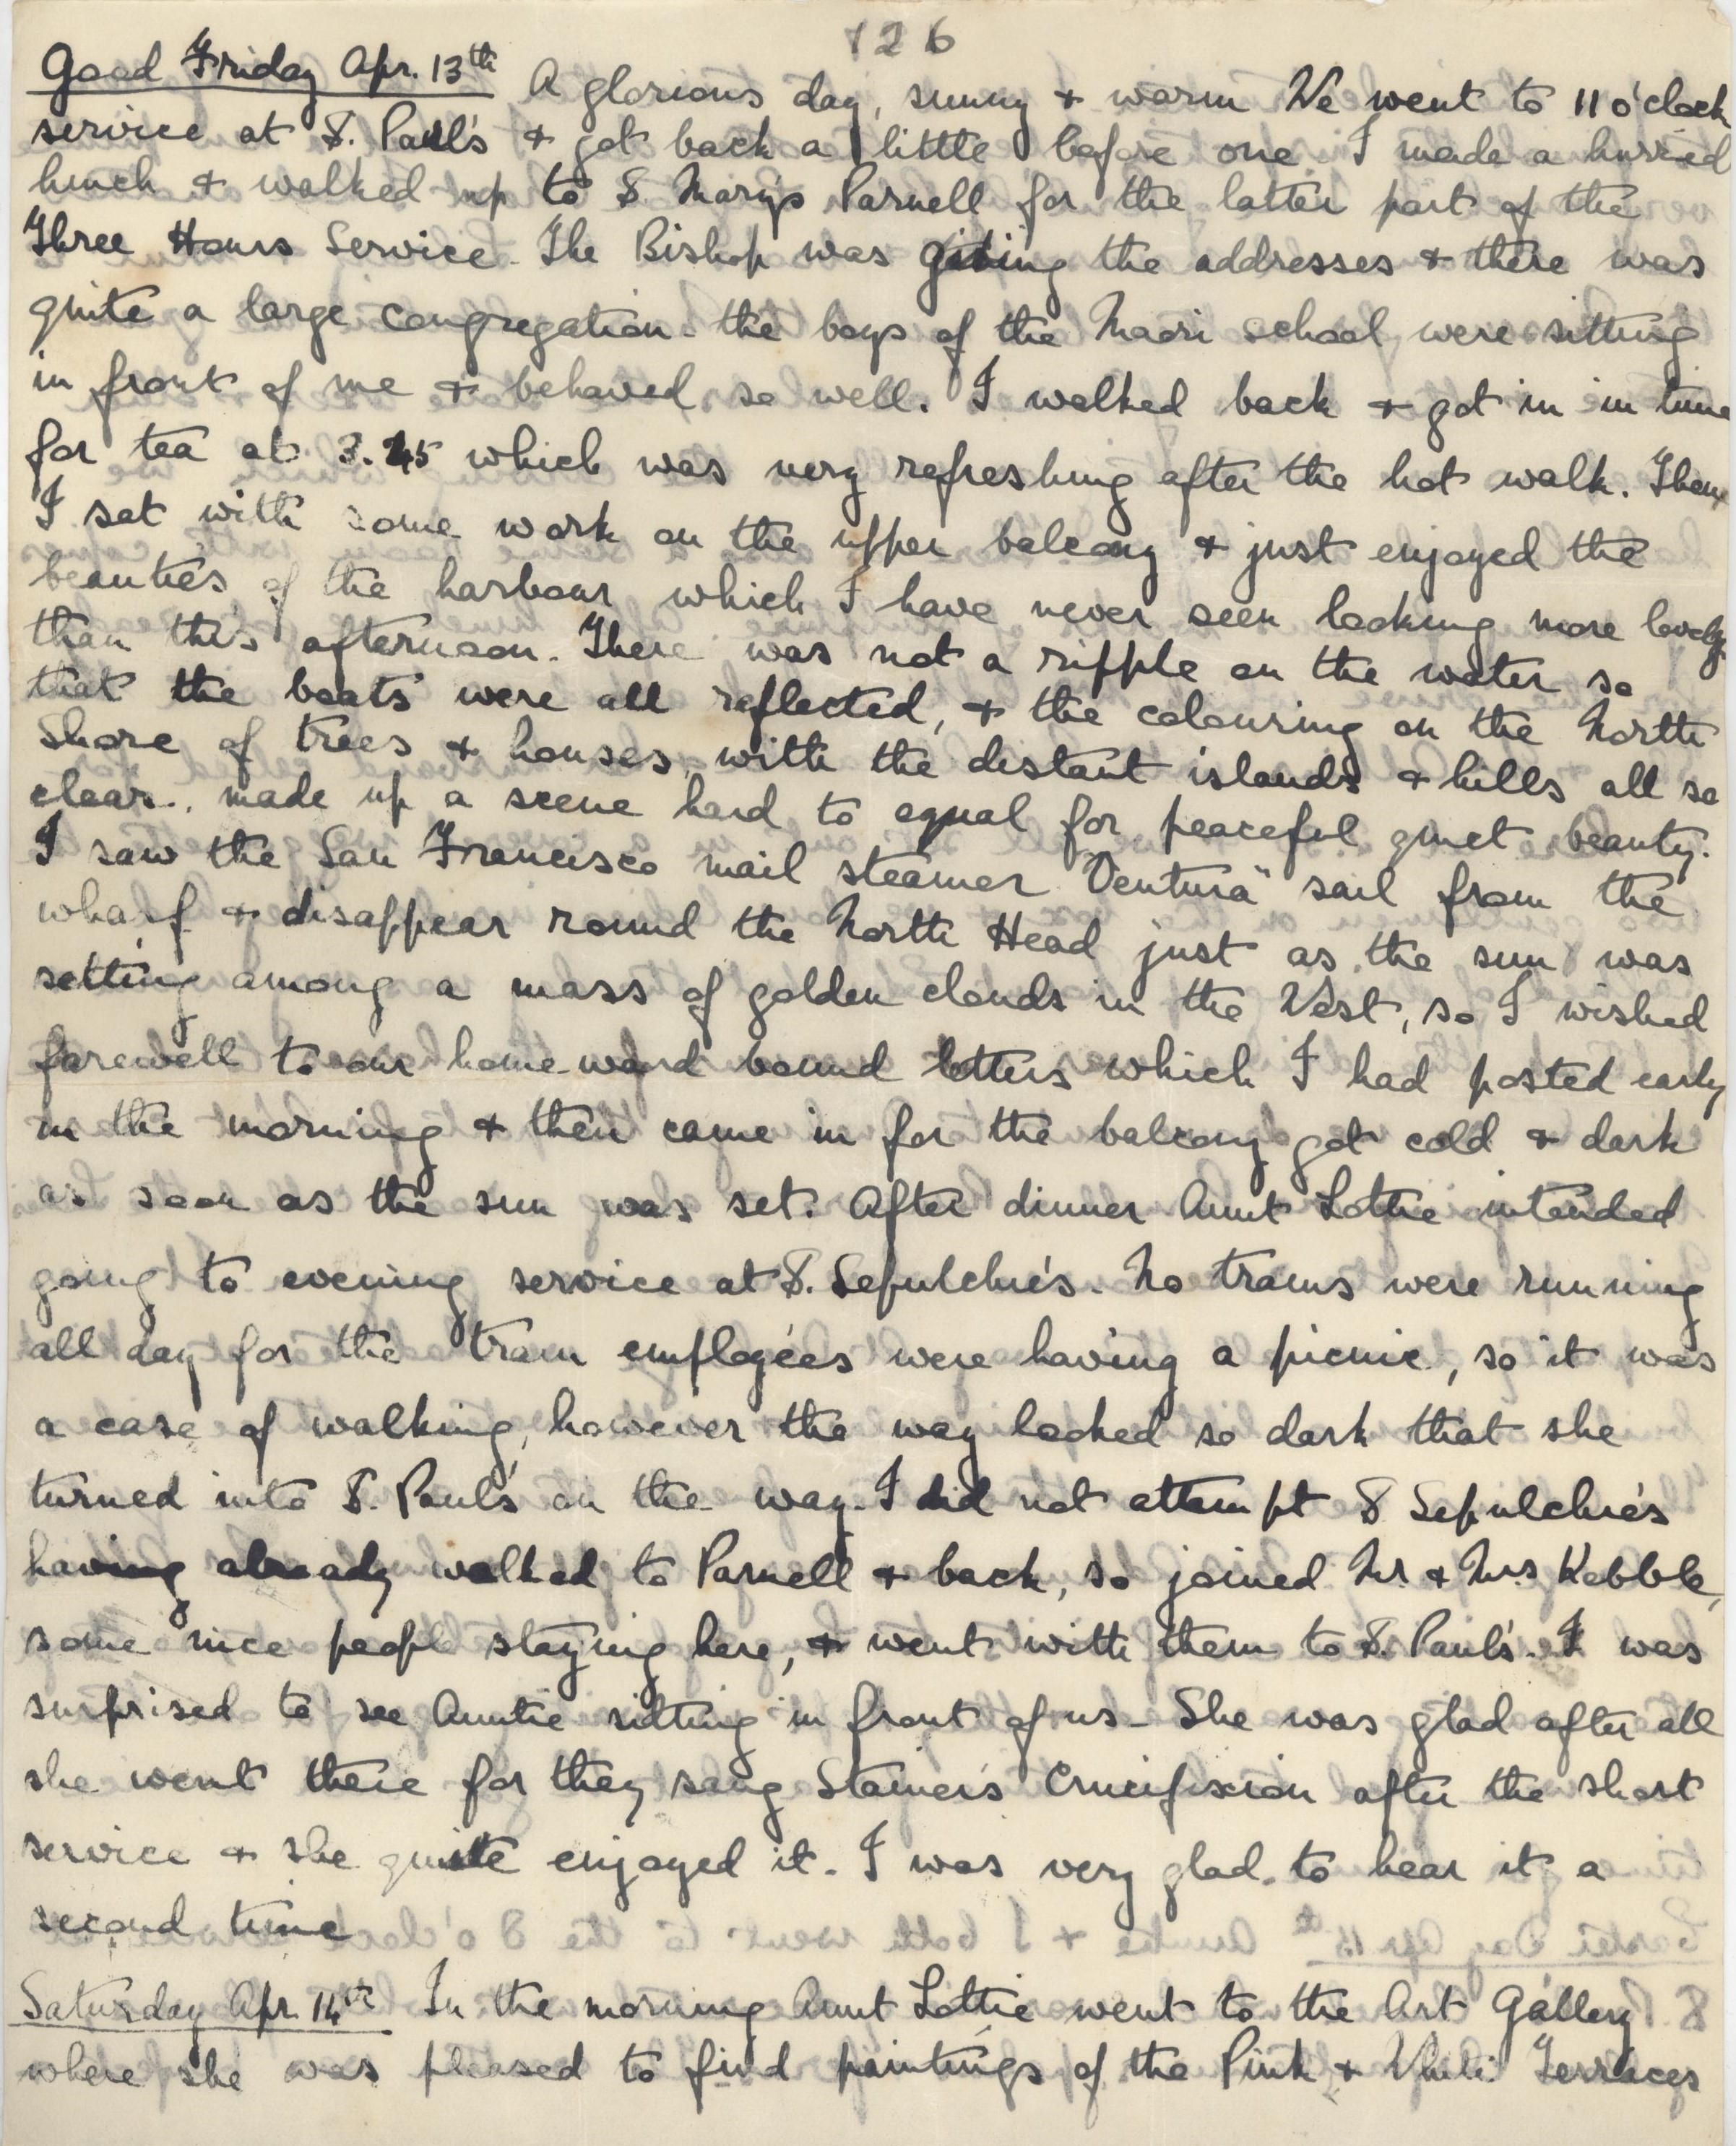 126
Good Friday Apr. 13th A glorious day, sunny + warm We went to 11 o'clock
service at S. Paul's + got back a little before one. I made a hurried
lunch + walked up to S. Mary's Parnell for the latter part of the
Three Hours Service. The Bishop was giving the addresses + there was
quite a large congregation - the boys of the Maori school were sitting
in front of me + behaved so well. I walked back + got in in time
for tea at 3.45 which was very refreshing after the hot walk. Then
I sat with some work on the upper balcony + just enjoyed the
beauties of the harbour which I have never seen looking more lovely
than this afternoon. There was not a ripple on the water so
that the boats were all reflected, + the colouring on the North
Shore of trees + houses, with the distant islands + hills all so
clear, made up a scene hard to equal for peaceful quiet beauty.
I saw the San Francisco mail steamer "Ventura" sail from the
wharf + disappear round the North Head just as the sun was
setting among a mass of golden clouds in the West, so I wished
farewell to our homeward bound letters which I had posted early
in the morning + then came in for the balcony got cold + dark
as soon as the sun was set. After dinner Aunt Lottie intended
going to evening service at S. Sepulchre's. No trams were running
all day for the tram employées were having a picnic, so it was
a case of walking, however the way looked so dark that she
turned into S. Paul's on the way. I did not attempt S Sepulchre's
having already walked to Parnell + back, so joined Mr. + Mrs Kebble,
some nice people staying here, + went with them to S. Paul's. I was
surprised to see Auntie sitting in front of us - She was glad after all
she went there for they sang Stainer's Crucifixion after the short
service + she quite enjoyed it. I was very glad to hear it a
second time
Saturday Apr. 14th In the morning Aunt Lottie went to the Art Gallery
where she was pleased to find paintings of the Pink + White Terraces